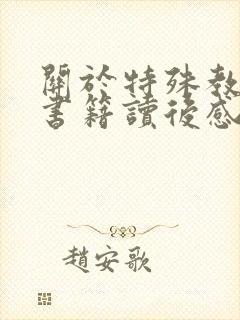 關於特殊教
書籍讀後感
趙安歌